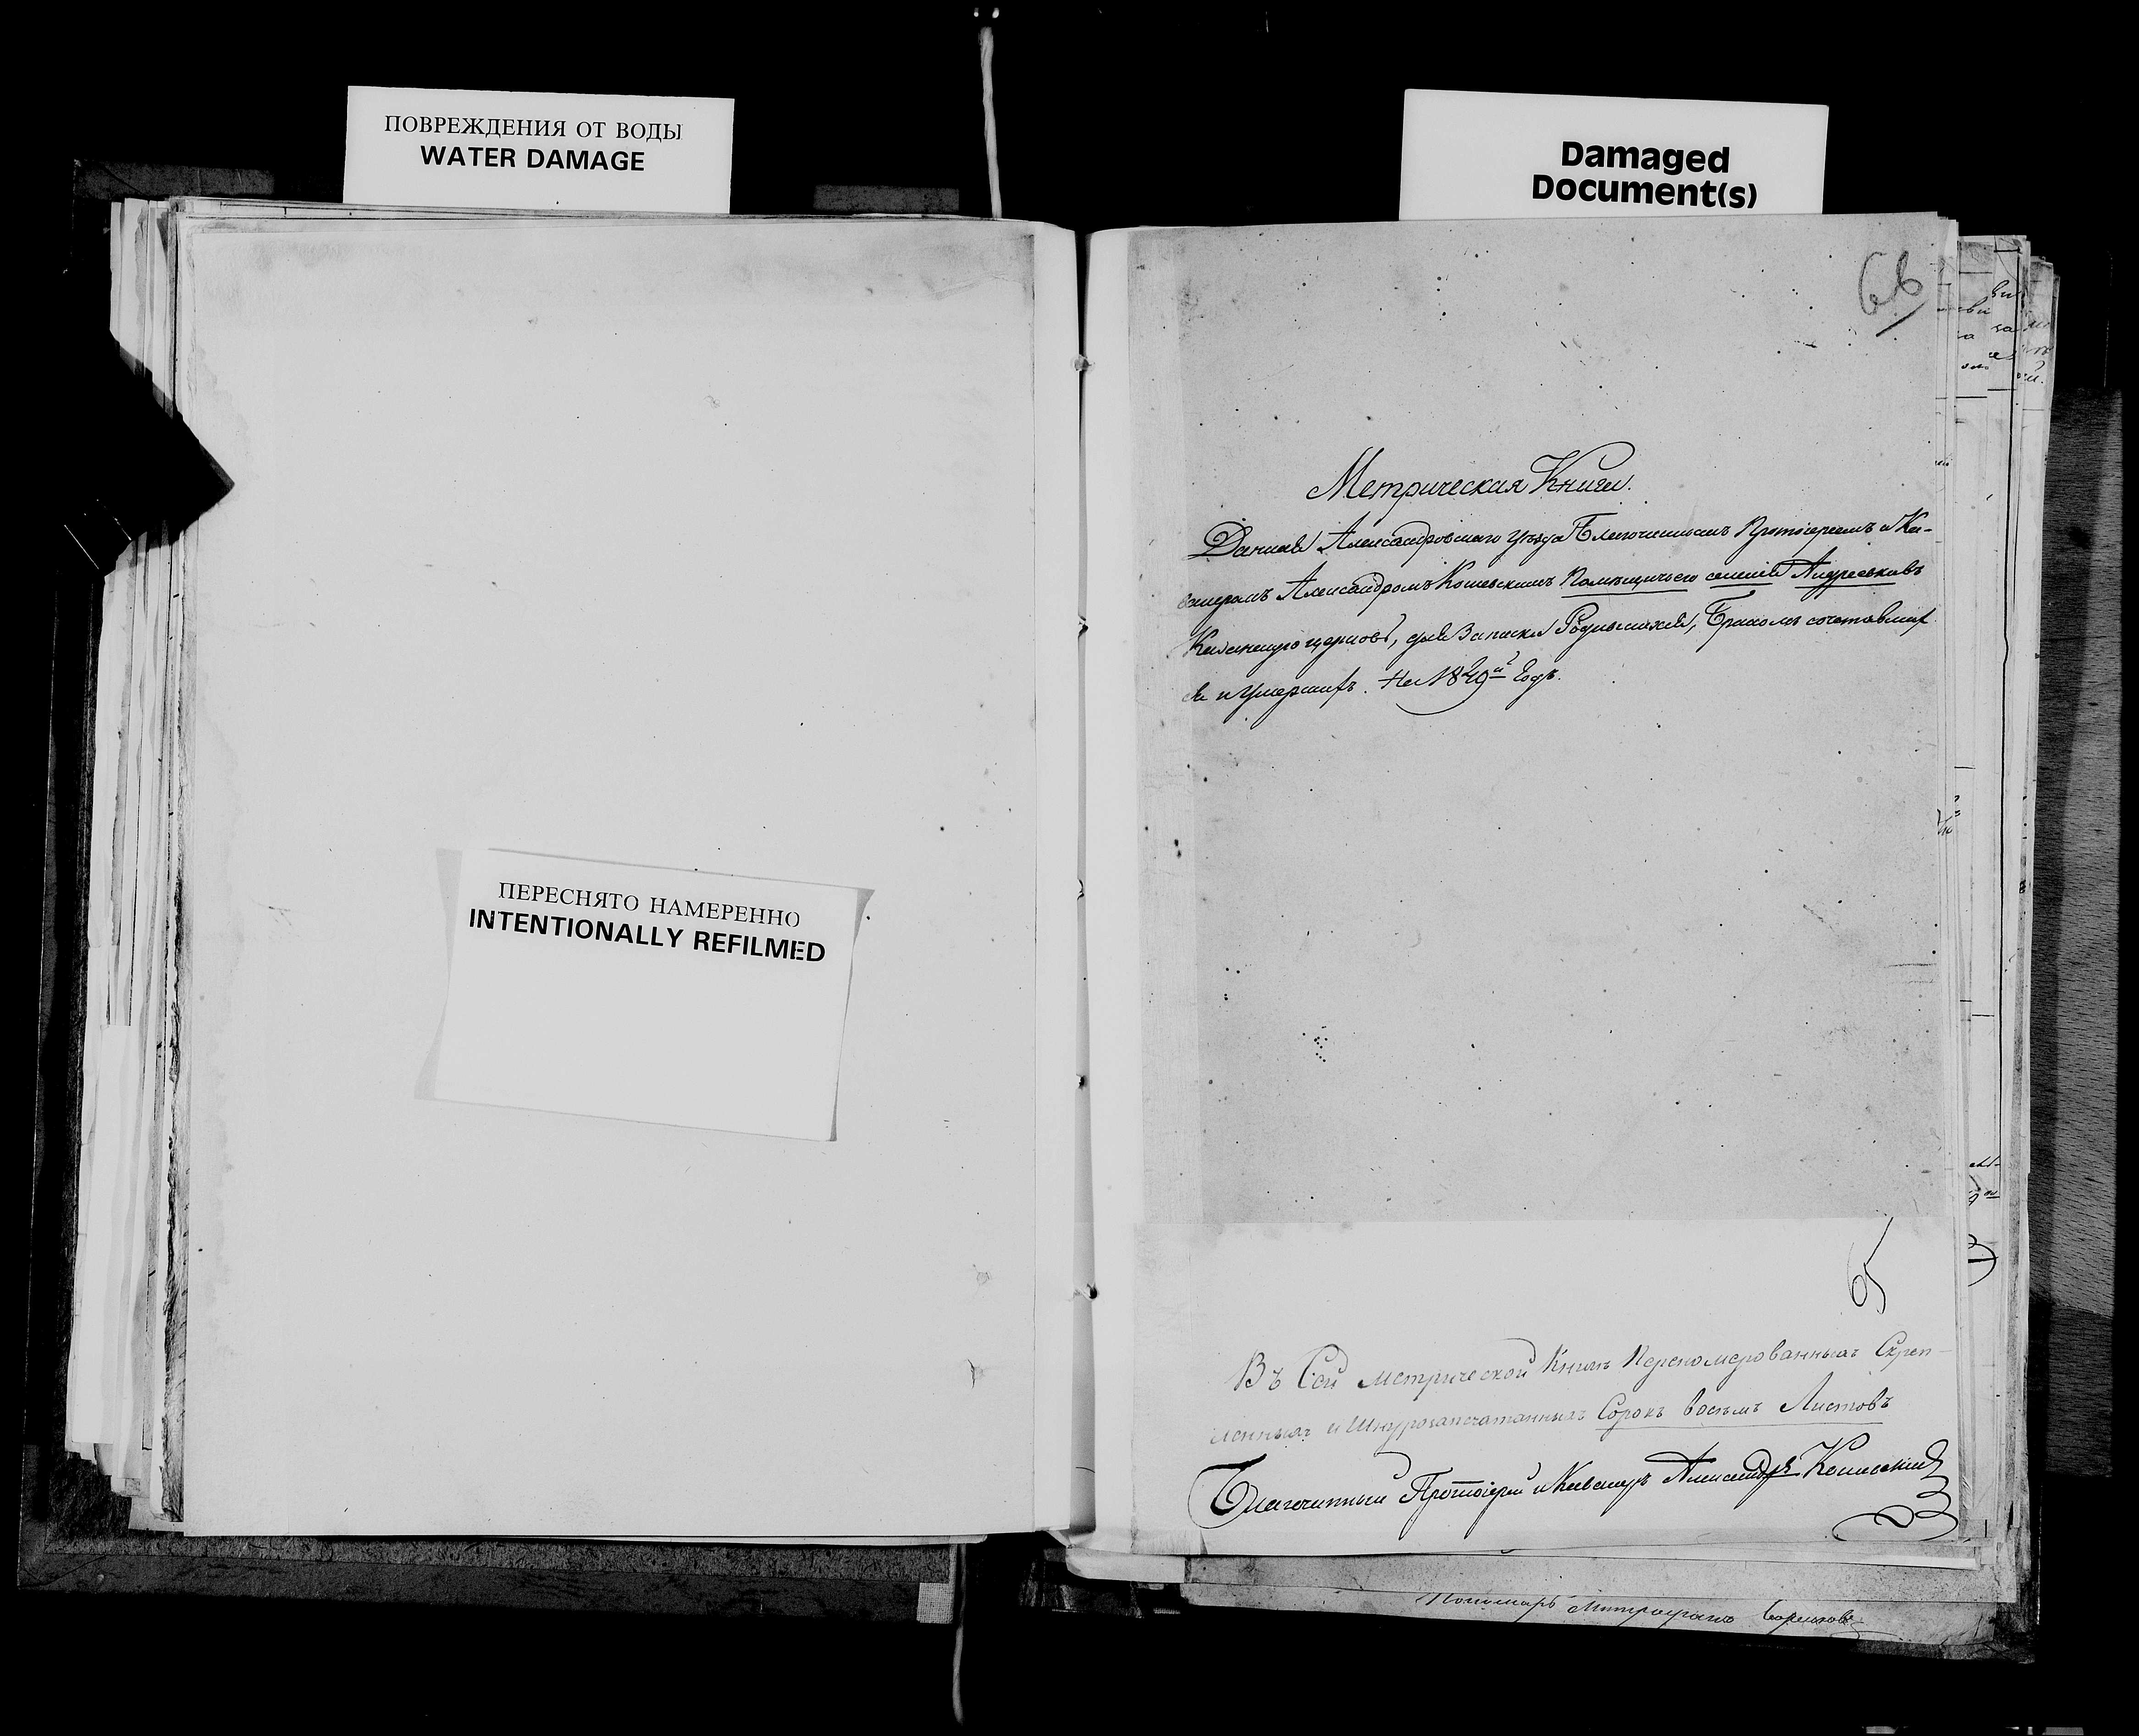 ПОВРЕЖДЕНИЯ ОТ ВОДЫ
WATER DAMAGE
Damaged
Document(s)
ПЕРЕСНЯТО НАМЕРЕННО
INTENTIONALLY REFILMED
66
Метрическая Книга.
Данная Александровскаго уѣзда Благочиннымъ Протоіереемъ и Ка-
валеромъ Александромъ Кошевскимъ Помѣщичьего селенія Андреевкавъ
Казанскую церковь, для Записки Родившихся, Бракомъ сочетавших
ся и умершихъ. На 1849й Годъ.
65
Въ Сей Метрической Книгѣ Перенумерованныхъ Скреп-
ленныхъ и Шнурозапечатанныхъ Сорокъ восемь Листовъ
Благочинный Протоіерей и Кавалеръ Александръ Кошевский
Пономарь Митрофанъ